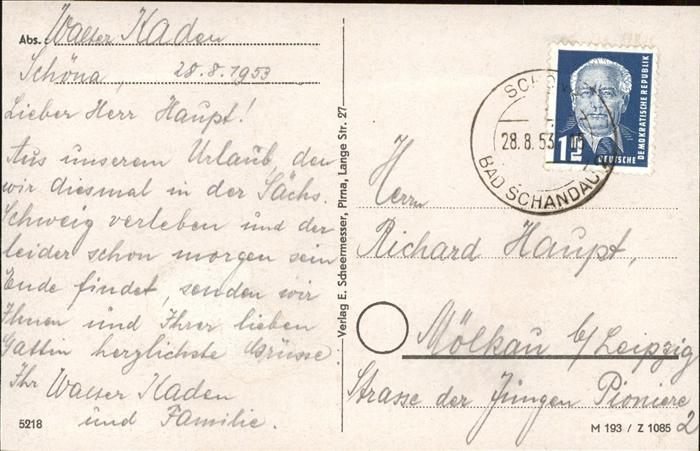 Abs.: Walter Kaden
Schöna, 28.8.1953
Lieber Herr Haupt!
Aus unserem Urlaub, den
wir diesmal in der Sächs.
Schweiz verleben und der
leider schon morgen sein
Ende findet, senden wir
Ihnen und Ihrer lieben
Gattin herzlichste Grüsse.
Ihr Walter Kaden
und Familie.
5218
Verlag E. Scheermesser, Pirna, Lange Str. 27
SCHÖNA
28.8.53
BAD SCHANDAU
DEUTSCHE DEMOKRATISCHE REPUBLIK
Herrn
Richard Haupt,
Mölkau b/Leipzig
Strasse der Jungen Pioniere
2
M 193 / Z 1085